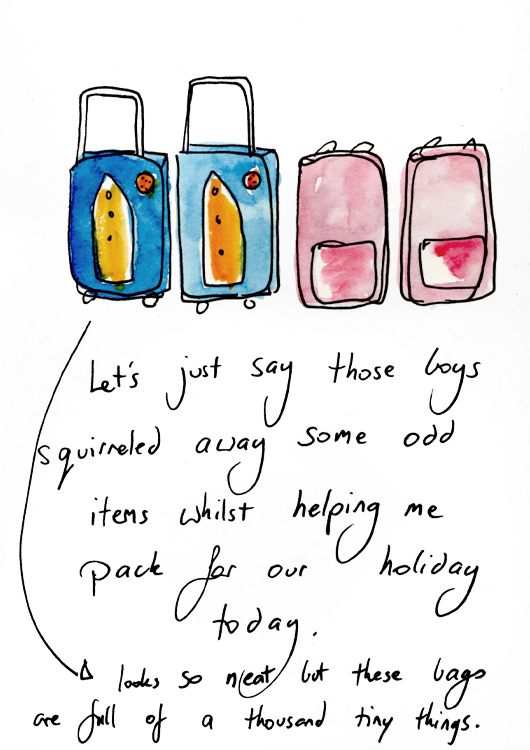 Let's just say those boys
squirreled away some odd
items whilst helping me
pack for our holiday
today.
looks so neat but these bags
are full of a thousand tiny things.